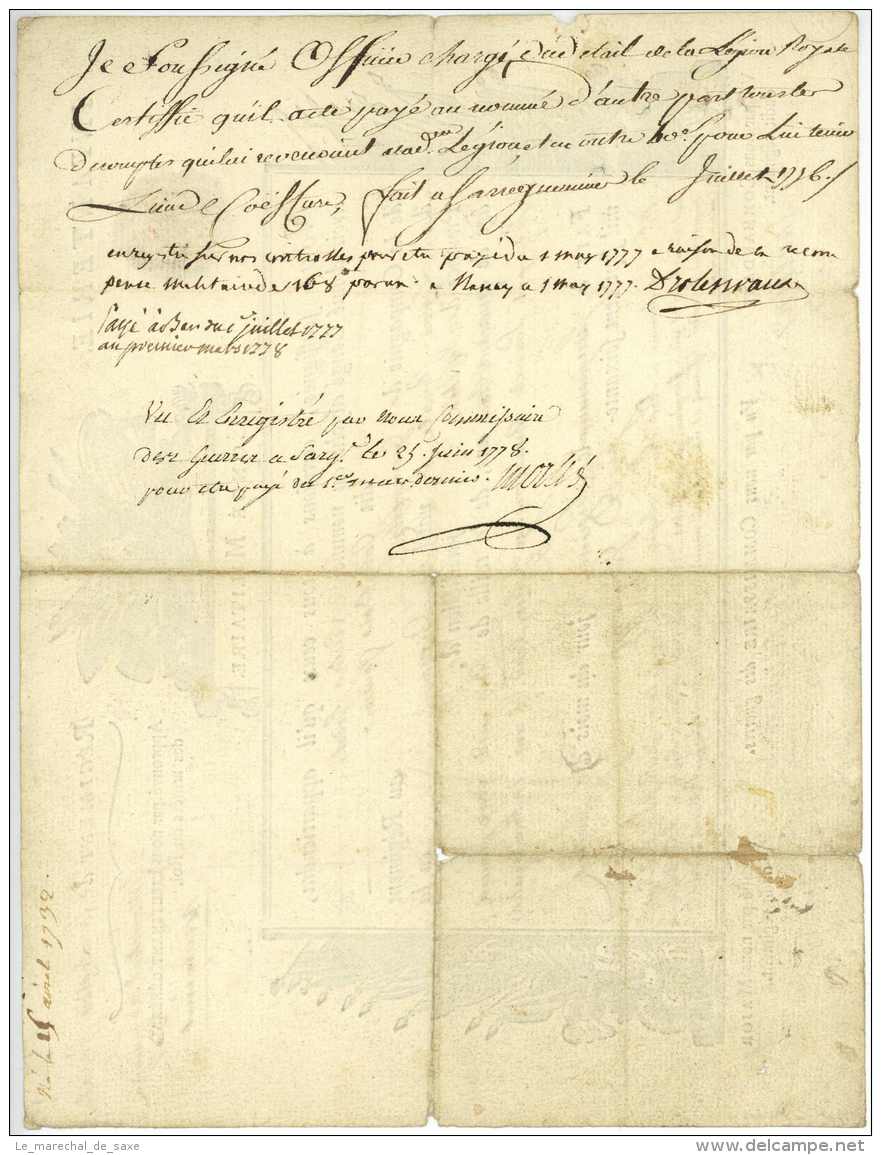 Je Soussigné Officier chargé du detail de la Legion Royale
Certiffie qu'il a ete payé au nommé d'autre part tous les
decomptes qui lui revenoient a lad. Légion et en outre 40# pour lui tenir
Lieu de Coëffure, fait a Sarreguemine le Juillet 1776.
enregistré sur nos controlles pour etre payé du 1 may 1777 a raison de la recom
pense militaire de 168# par an a Nancy a 1 may 1777. Drolenvaux
Payé à du 1er juillet 1777
au premier mars 1778
Vu Et Enregistré par nous Commissaire
des Guerres a Sarg. le 25. juin 1778.
pour etre payé du 1er mars dernier.
Né le 25 avril 1732.
Le_marechal_de_saxe
www.delcampe.net